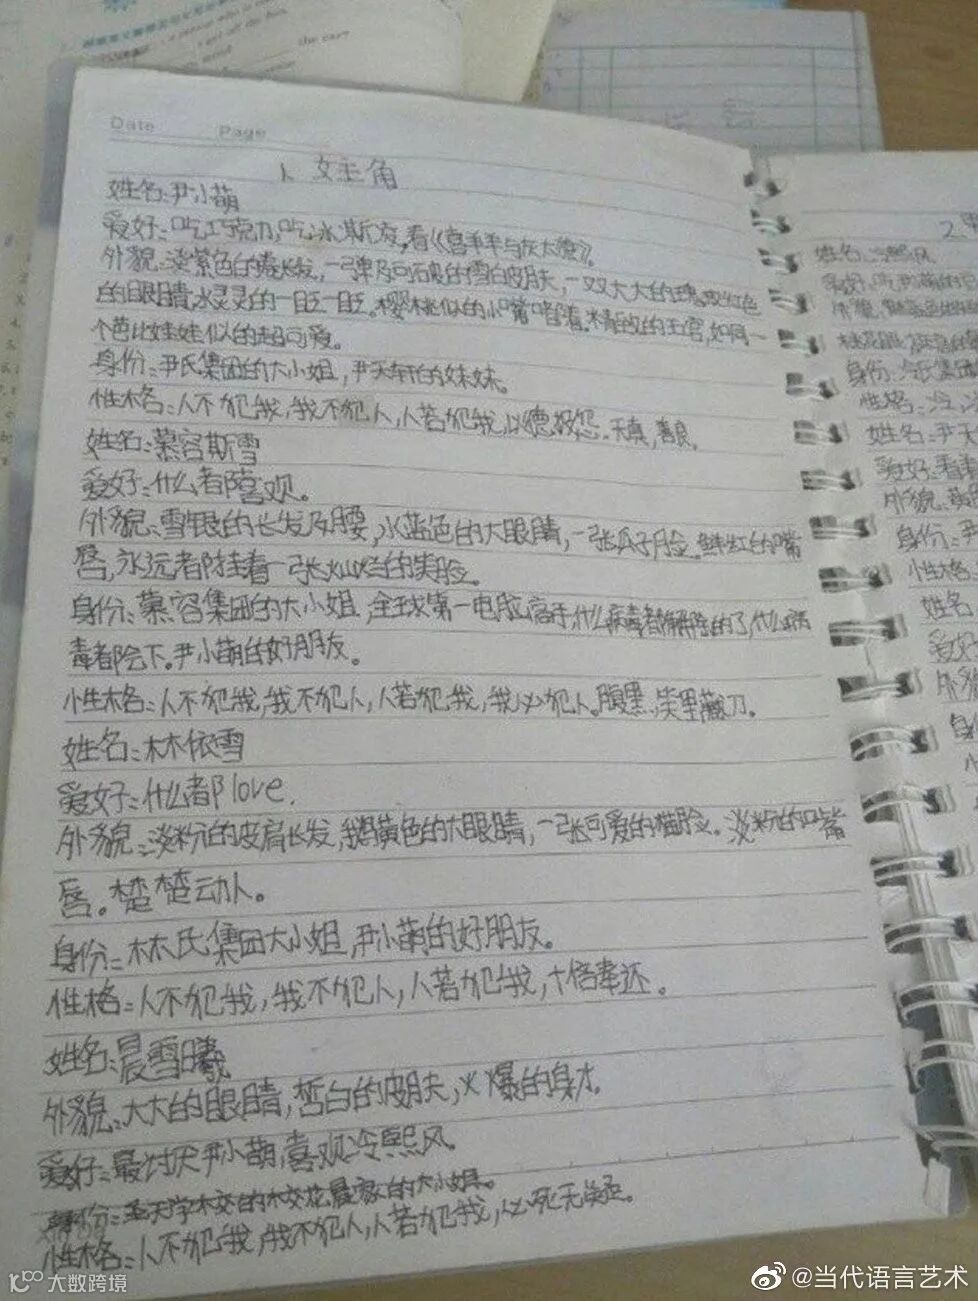 the ear?
Date Page
1、女主角
姓名:尹小萌
爱好:吃巧克力,吃冰斯友,看《喜羊羊与灰太狼》。
外貌:淡紫色的卷长发,一弹及可破的雪白皮肤,一双大大的玫瑰红色
的眼睛水灵灵的一眨一眨。樱桃似的小嘴嘟着。精致的五官,如同一
个芭比娃娃似的超可爱。
身份:尹氏集团的大小姐,尹天轩的妹妹。
性格:人不犯我,我不犯人,人若犯我,以德报怨。天真,善良。
姓名:慕容斯雪
爱好:什么都喜观。
外貌:雪银的长发及腰,水蓝色的大眼睛,一张瓜子脸。鲜红的嘴
唇,永远都挂着一张灿烂的笑脸。
身份:慕容集团的大小姐,全球第一电脑高手,什么病毒都解除的了,什么病
毒都会下。尹小萌的好朋友。
性格:人不犯我,我不犯人,人若犯我,我必犯人。腹黑,笑里藏刀。
姓名:林依雪
爱好:什么都love.
外貌:淡粉的皮肩长发,鹅黄色的大眼睛,一张可爱的猫脸。淡粉的嘴
唇。楚楚动人。
身份:林氏集团大小姐,尹小萌的好朋友。
性格:人不犯我,我不犯人,人若犯我,十倍奉还。
姓名:晨雪曦
外貌:大大的眼睛,皙白的皮肤,火爆的身才.
爱好:最讨厌尹小萌,喜观冷熙风.
身份:圣天学校的校花,晨家的大小姐.
性格:人不犯我,我不犯人,人若犯我,必死无疑.
2、男
姓名:冷熙风
爱好:
外貌:
桃花眼
身份:冷氏集团
性格:冷,
姓名:尹天
爱好:看着
外貌:
身份:尹
性格:
姓名
爱好
外貌
身
大数跨境
@当代语言艺术